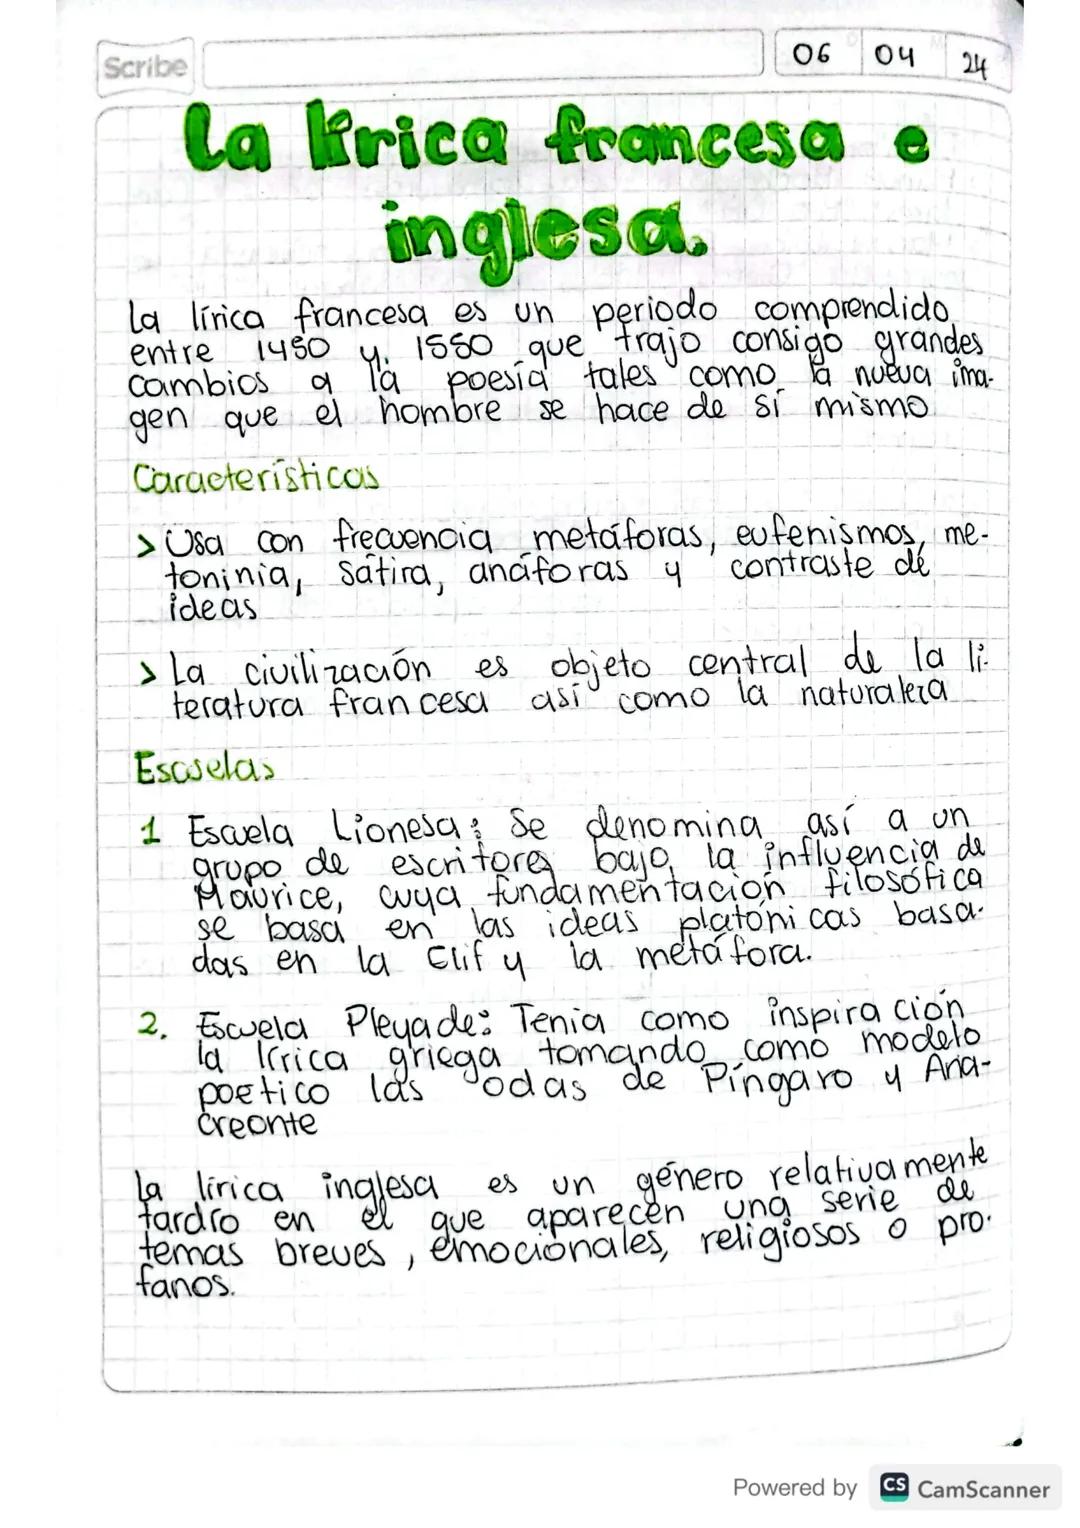 Scribe
06 04 24
La lírica francesa e
inglesa.
La lírica francesa es un periodo comprendido
entre 1450 y. 1550 que trajo consigo grandes
cambios a la poesía tales como la nueva ima-
gen que el hombre se hace de sí mismo
Características
> Usa con frecuencia metáforas, eufenismos, me-
toninia, sátira, anáforas y contraste de
ideas
> La civilización es objeto central de la li-
teratura francesa así como la naturaleza
Escuelas
1 Escuela Lionesa: Se denomina así a un
grupo de escritores bajo la influencia de
Maurice, cuya fundamentación filosófica
se basa en las ideas platónicas basa-
das en la Elif y la metáfora.
2. Escuela Pleyade: Tenia como inspiración
la lírica griega tomando como modelo
poetico las odas de Píngaro y Ana-
creonte
La lírica inglesa es un género relativamente
tardío en el que aparecen una serie de
temas breves, emocionales, religiosos o pro-
fanos.
Powered by CS CamScanner